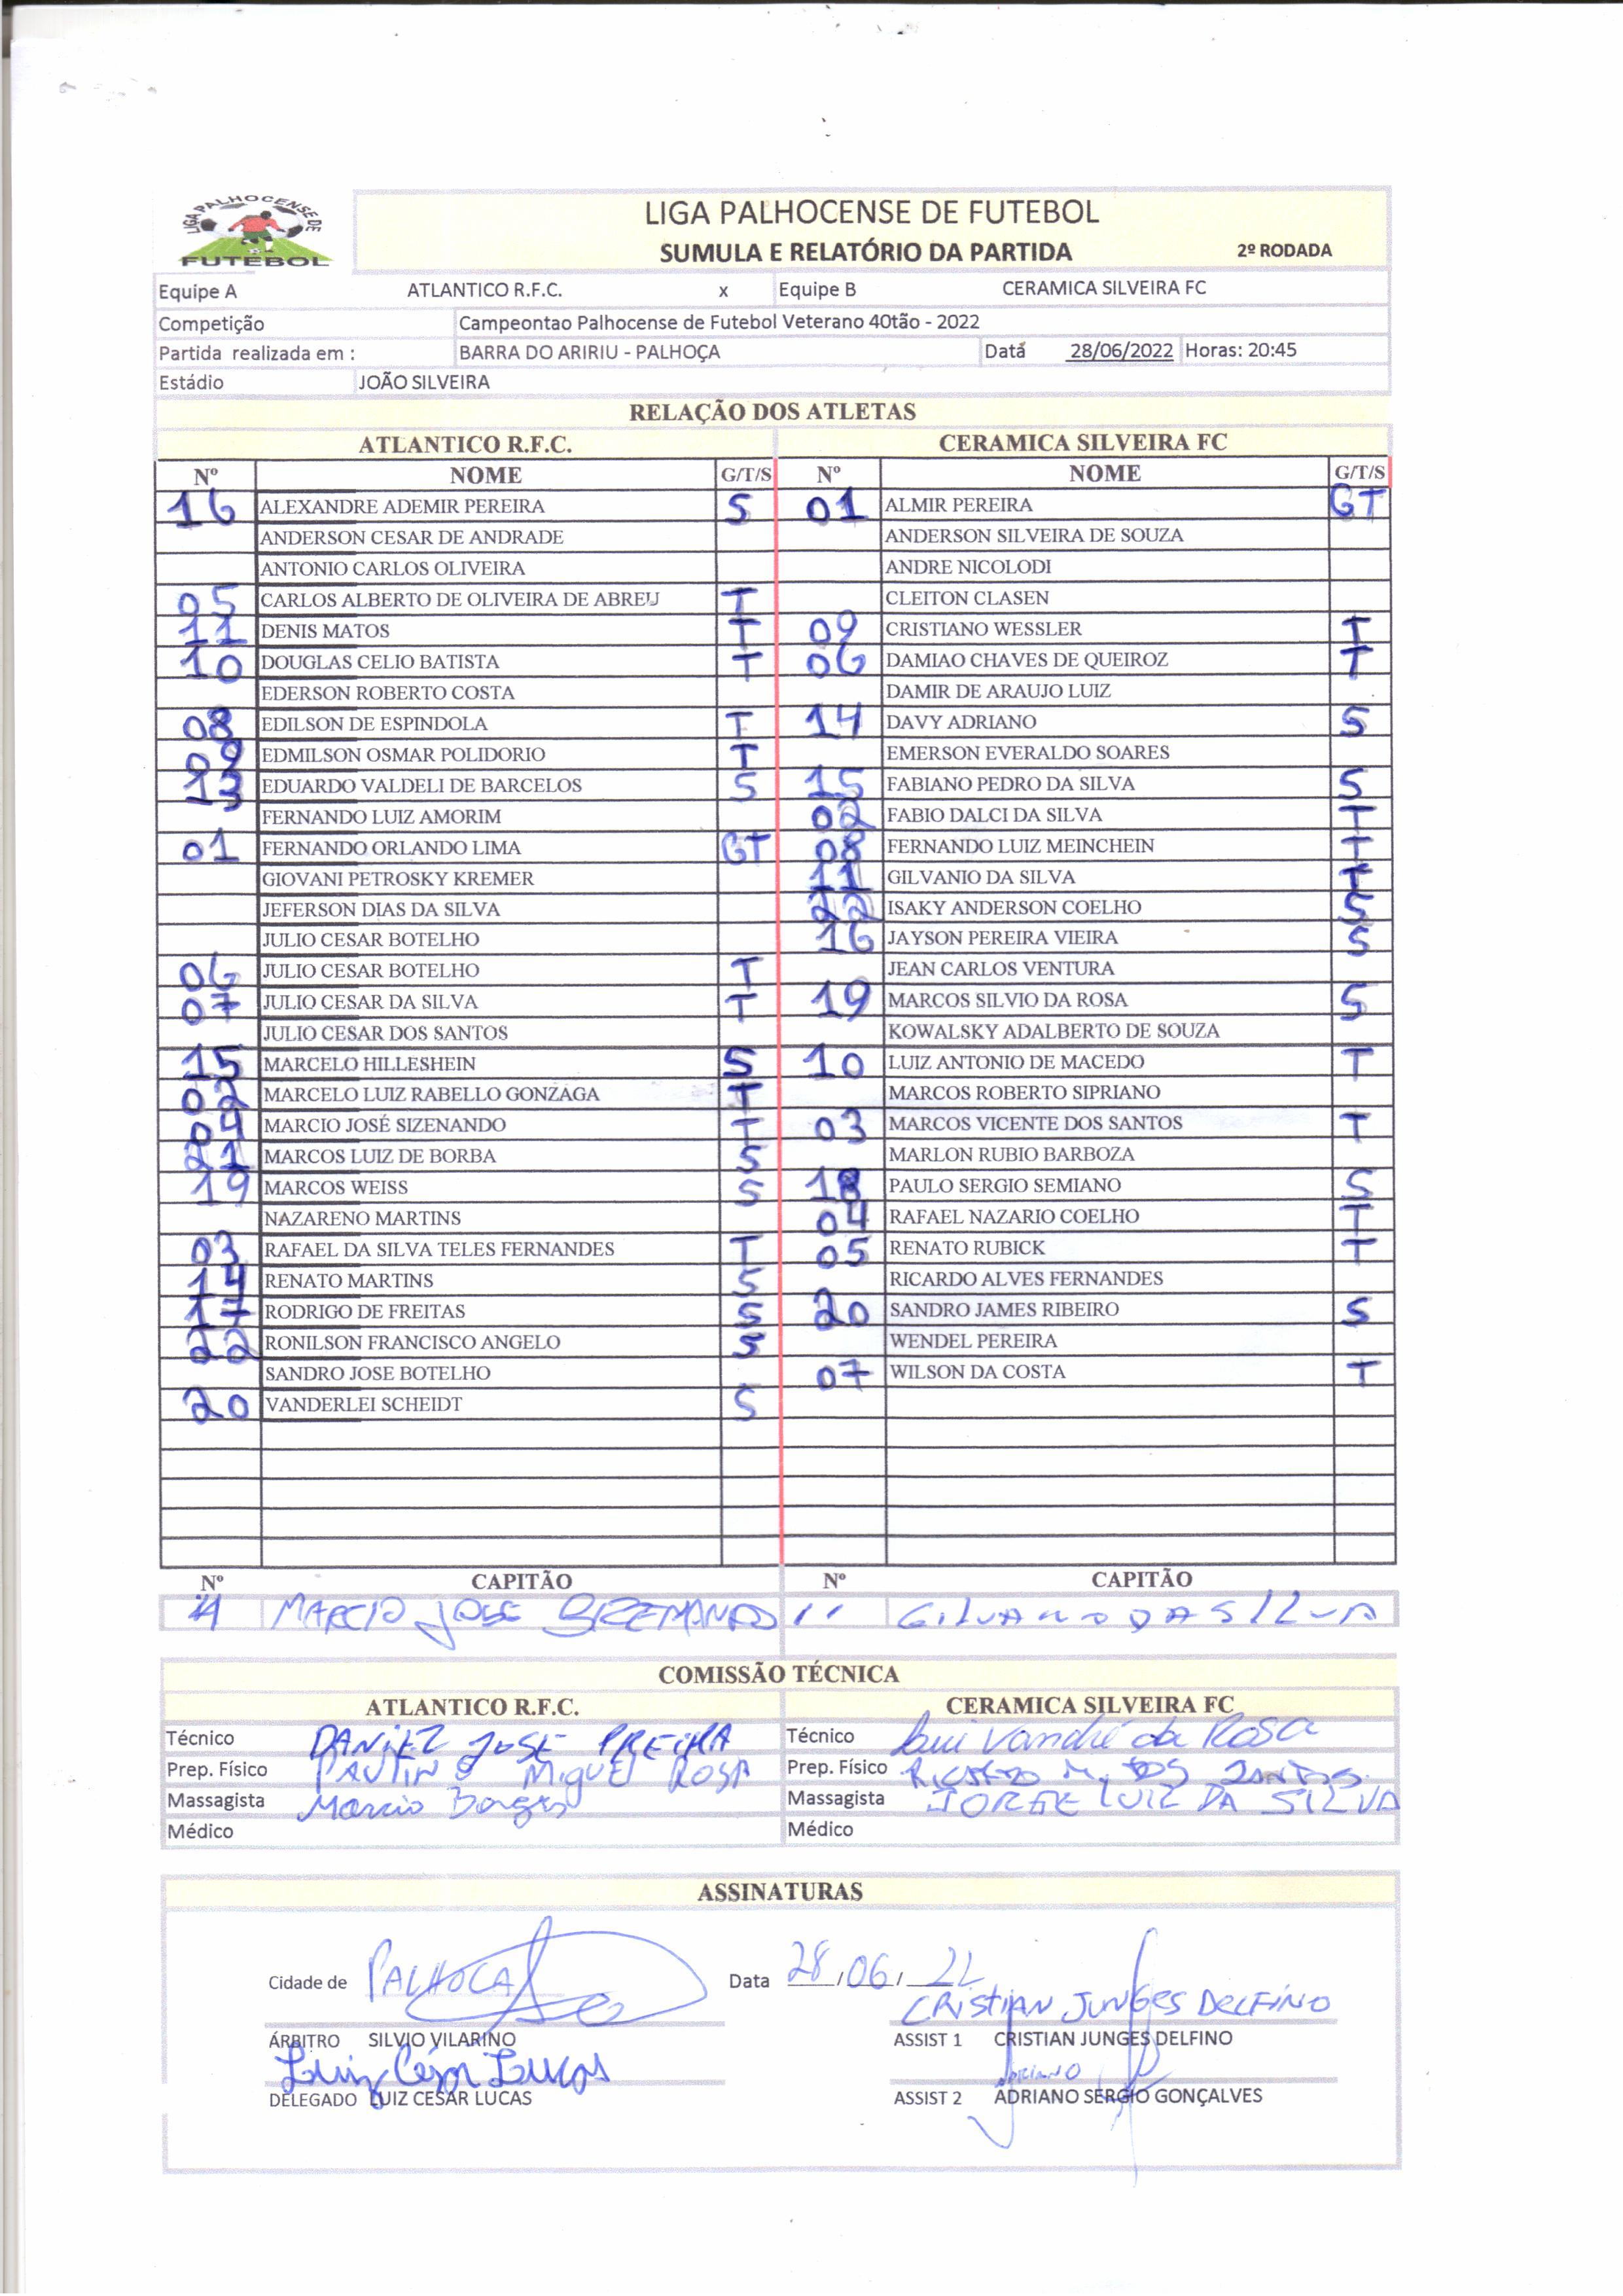 LIGA PALHOCENSE DE FUTEBOL
LIGA PALHOCENSE DE FUTEBOL
SUMULA E RELATÓRIO DA PARTIDA 2º RODADA
Equipe A ATLANTICO R.F.C. x Equipe B CERAMICA SILVEIRA FC
Competição Campeontao Palhocense de Futebol Veterano 40tão - 2022
Partida realizada em : BARRA DO ARIRIU - PALHOÇA Data 28/06/2022 Horas: 20:45
Estádio JOÃO SILVEIRA
RELAÇÃO DOS ATLETAS
ATLANTICO R.F.C. CERAMICA SILVEIRA FC
Nº NOME G/T/S Nº NOME G/T/S
16 ALEXANDRE ADEMIR PEREIRA S 01 ALMIR PEREIRA GT
ANDERSON CESAR DE ANDRADE ANDERSON SILVEIRA DE SOUZA
ANTONIO CARLOS OLIVEIRA ANDRE NICOLODI
05 CARLOS ALBERTO DE OLIVEIRA DE ABREU T CLEITON CLASEN
11 DENIS MATOS T 09 CRISTIANO WESSLER T
10 DOUGLAS CELIO BATISTA T 06 DAMIAO CHAVES DE QUEIROZ T
EDERSON ROBERTO COSTA DAMIR DE ARAUJO LUIZ
08 EDILSON DE ESPINDOLA T 14 DAVY ADRIANO S
09 EDMILSON OSMAR POLIDORIO T EMERSON EVERALDO SOARES
13 EDUARDO VALDELI DE BARCELOS S 15 FABIANO PEDRO DA SILVA S
FERNANDO LUIZ AMORIM 02 FABIO DALCI DA SILVA T
01 FERNANDO ORLANDO LIMA GT 08 FERNANDO LUIZ MEINCHEIN T
GIOVANI PETROSKY KREMER 11 GILVANIO DA SILVA T
JEFERSON DIAS DA SILVA 22 ISAKY ANDERSON COELHO S
JULIO CESAR BOTELHO 16 JAYSON PEREIRA VIEIRA S
06 JULIO CESAR BOTELHO T JEAN CARLOS VENTURA
07 JULIO CESAR DA SILVA T 19 MARCOS SILVIO DA ROSA S
JULIO CESAR DOS SANTOS KOWALSKY ADALBERTO DE SOUZA
15 MARCELO HILLESHEIN S 10 LUIZ ANTONIO DE MACEDO T
02 MARCELO LUIZ RABELLO GONZAGA T MARCOS ROBERTO SIPRIANO
04 MARCIO JOSÉ SIZENANDO T 03 MARCOS VICENTE DOS SANTOS T
21 MARCOS LUIZ DE BORBA S MARLON RUBIO BARBOZA
19 MARCOS WEISS S 18 PAULO SERGIO SEMIANO S
NAZARENO MARTINS 04 RAFAEL NAZARIO COELHO T
03 RAFAEL DA SILVA TELES FERNANDES T 05 RENATO RUBICK T
14 RENATO MARTINS S RICARDO ALVES FERNANDES
17 RODRIGO DE FREITAS S 20 SANDRO JAMES RIBEIRO S
22 RONILSON FRANCISCO ANGELO S WENDEL PEREIRA
SANDRO JOSE BOTELHO 07 WILSON DA COSTA T
20 VANDERLEI SCHEIDT S
Nº CAPITÃO Nº CAPITÃO
MARCIO JOSE SIZEMANDO 11 GILVANO DA SILVA
COMISSÃO TÉCNICA
ATLANTICO R.F.C. CERAMICA SILVEIRA FC
Técnico DANIEL JOSE PREIRA Técnico Vandré da Rosa
Prep. Físico Miguel ROSA Prep. Físico RICARDO M. DOS SANTOS
Massagista Marcio Borges Massagista JORGE LUIZ DA SILVA
Médico Médico
ASSINATURAS
Cidade de PALHOCA Data 28/06/22
CRISTIAN JUNGES DELFINO
ÁRBITRO SILVIO VILARINO ASSIST 1 CRISTIAN JUNGES DELFINO
Luiz César Lucas ADRIANO
DELEGADO LUIZ CESAR LUCAS ASSIST 2 ADRIANO SERGIO GONÇALVES